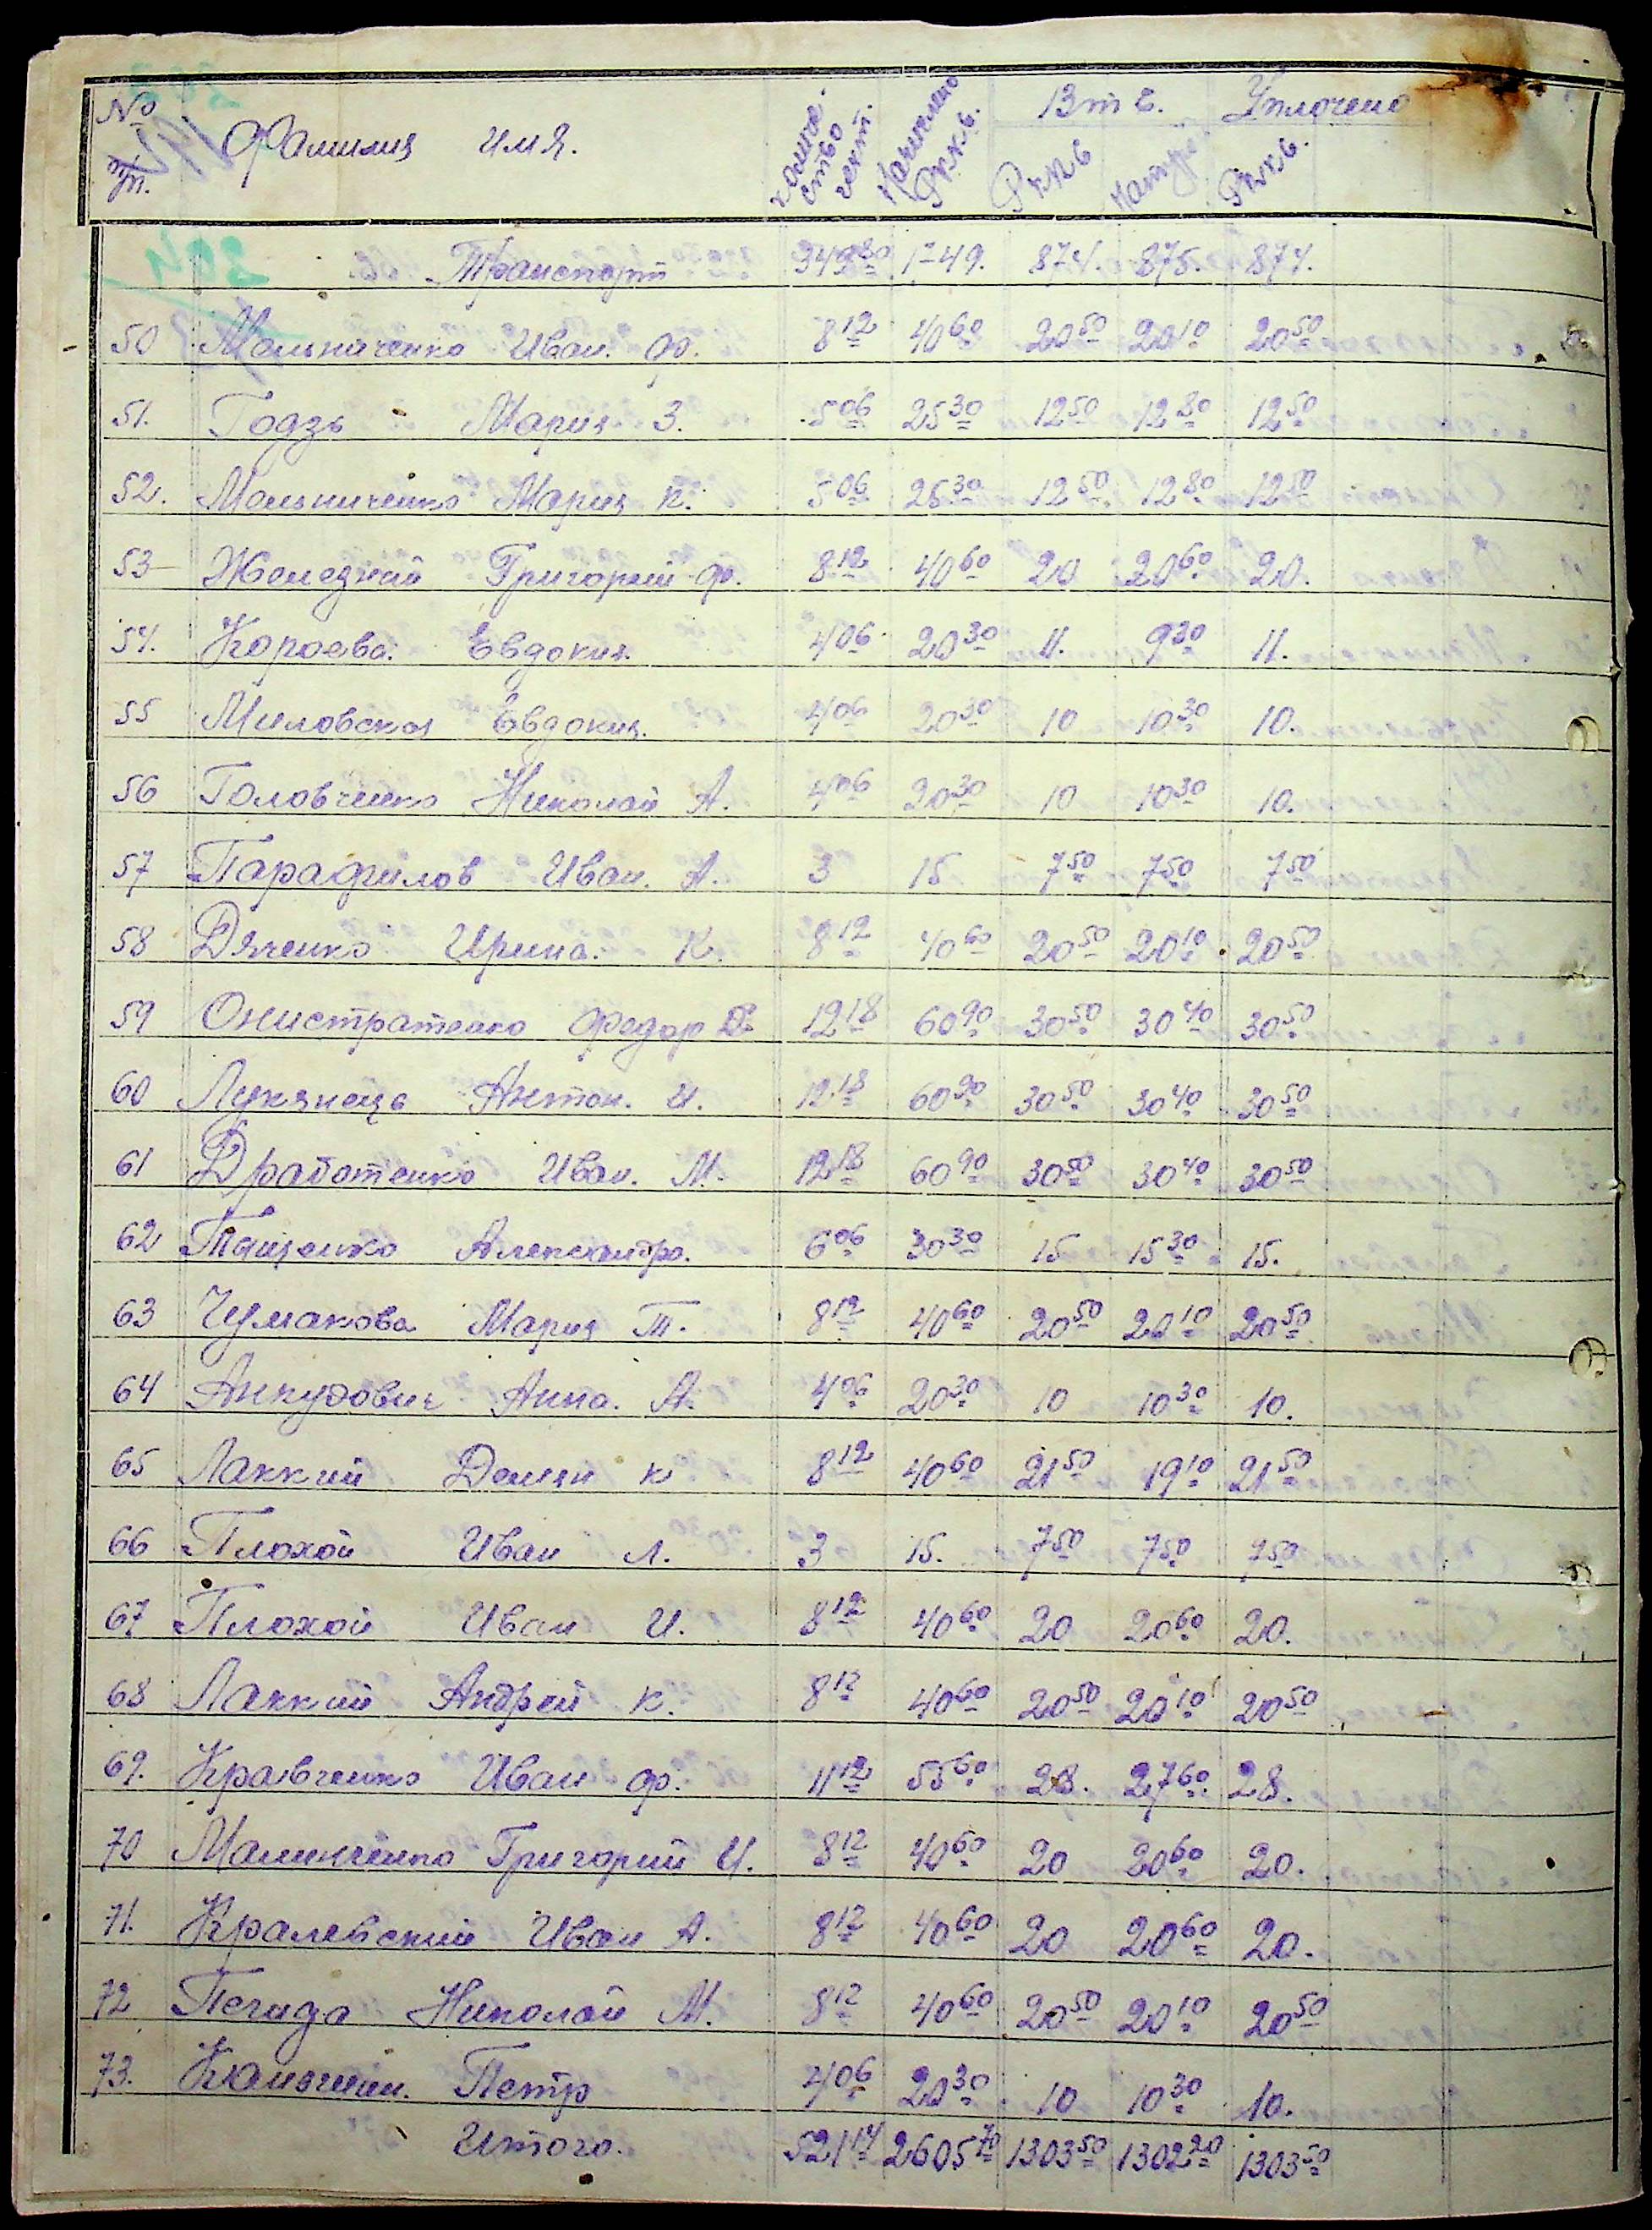 № п/п. Фамилия Имя. количество гект. Начислено Ркк. В т. ч. Уплочено
Ркк Натур Ркк.
Транспорт 349 80 1749. 874. 875. 874.
50 Мельниченко Иван. Ф. 8 12 40 60 20 50 20 10 20 50
51. Годзь Мария З. 5 06 25 30 12 50 12 80 12 50
52. Мельниченко Мария К. 5 06 25 30 12 50 12 80 12 50
53 Железний Григорий Ф. 8 12 40 60 20 20 60 20.
54. Короева Евдокия. 4 06 20 30 11. 9 30 11.
55 Миловская Евдокия. 4 06 20 30 10 10 30 10.
56 Головченко Николай А. 4 06 20 30 10 10 30 10.
57 Парафилов Иван. А. 3 15 7 50 7 50 7 50
58 Дяченко Ирина. К. 8 12 40 60 20 50 20 10 20 50
59 Онистратенко Федор 12 18 60 90 30 50 30 40 30 50
60 Лукянець Антон. И. 12 18 60 90 30 50 30 40 30 50
61 Дработенко Иван. М. 12 18 60 90 30 50 30 40 30 50
62 Тащенко Александра. 6 06 30 30 15 15 30 15.
63 Чумакова Мария Т. 8 12 40 60 20 50 20 10 20 50
64 Анкудович Анна. А. 4 06 20 30 10 10 30 10.
65 Лаккий Демян К 8 12 40 60 21 50 19 10 21 50
66 Плохой Иван Л. 3 15. 7 50 7 50 7 50
67 Плохой Иван И. 8 12 40 60 20 20 60 20.
68 Лаккий Андрей К. 8 12 40 60 20 50 20 10 20 50
69. Кравченко Иван Ф. 11 12 55 60 28. 27 60 28.
70 Малинченко Григорий И. 8 12 40 60 20 20 60 20.
71. Кралевский Иван А. 8 12 40 60 20 20 60 20.
72 Печида Николай М. 8 12 40 60 20 50 20 10 20 50
73. Петр 4 06 20 30 10 10 30 10.
Итого. 521 14 2605 70 1303 50 1302 20 1303 50